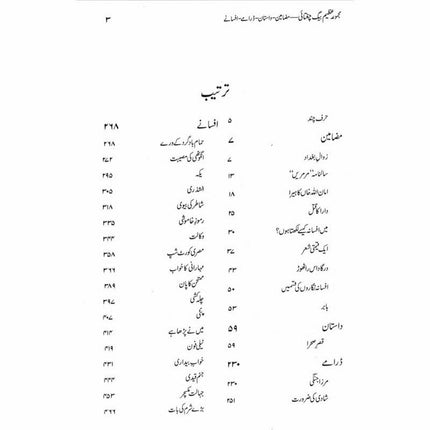 مجموعہ عظیم بیگ چغتائی — مضامین - داستان - ڈرامے - افسانے ۳
ترتیب
حرف چند ۵
مضامین ۷
زوال بغداد ۷
سالنامہ "مرمریں" ۱۳
امان اللہ خاں کا ہیرا ۱۸
دارا کا قتل ۲۵
میں افسانہ کیسے لکھتا ہوں؟ ۳۰
ایک قیمتی شعر ۳۷
درگا داس راٹھور ۴۳
افسانہ نگاروں کی قسمیں ۵۰
بابر ۵۳
داستان ۵۹
قصر صحرا ۵۹
ڈرامے ۲۳۰
مرزا جنگی ۲۳۰
شادی کی ضرورت ۲۵۱
افسانے ۲۶۸
حمام بادگرد کے ورے ۲۶۸
انگوٹھی کی مصیبت ۲۷۲
یکہ ۲۹۵
الشذری ۳۰۵
شاطر کی بیوی ۳۱۸
رموز خاموشی ۳۳۵
وکالت ۳۴۴
مصری کورٹ شپ ۳۵۸
مہارانی کا خواب ۳۶۶
ممتحن کا پان ۳۸۹
چلہ کشی ۳۹۷
۴۰۷
میں نے پڑھا ہے ۴۱۴
ٹیلی فون ۴۱۹
خواب بیداری ۴۳۱
جنم قیدی ۴۴۴
جہالت مکسچر ۴۵۳
بڑے شرم کی بات ۴۶۶